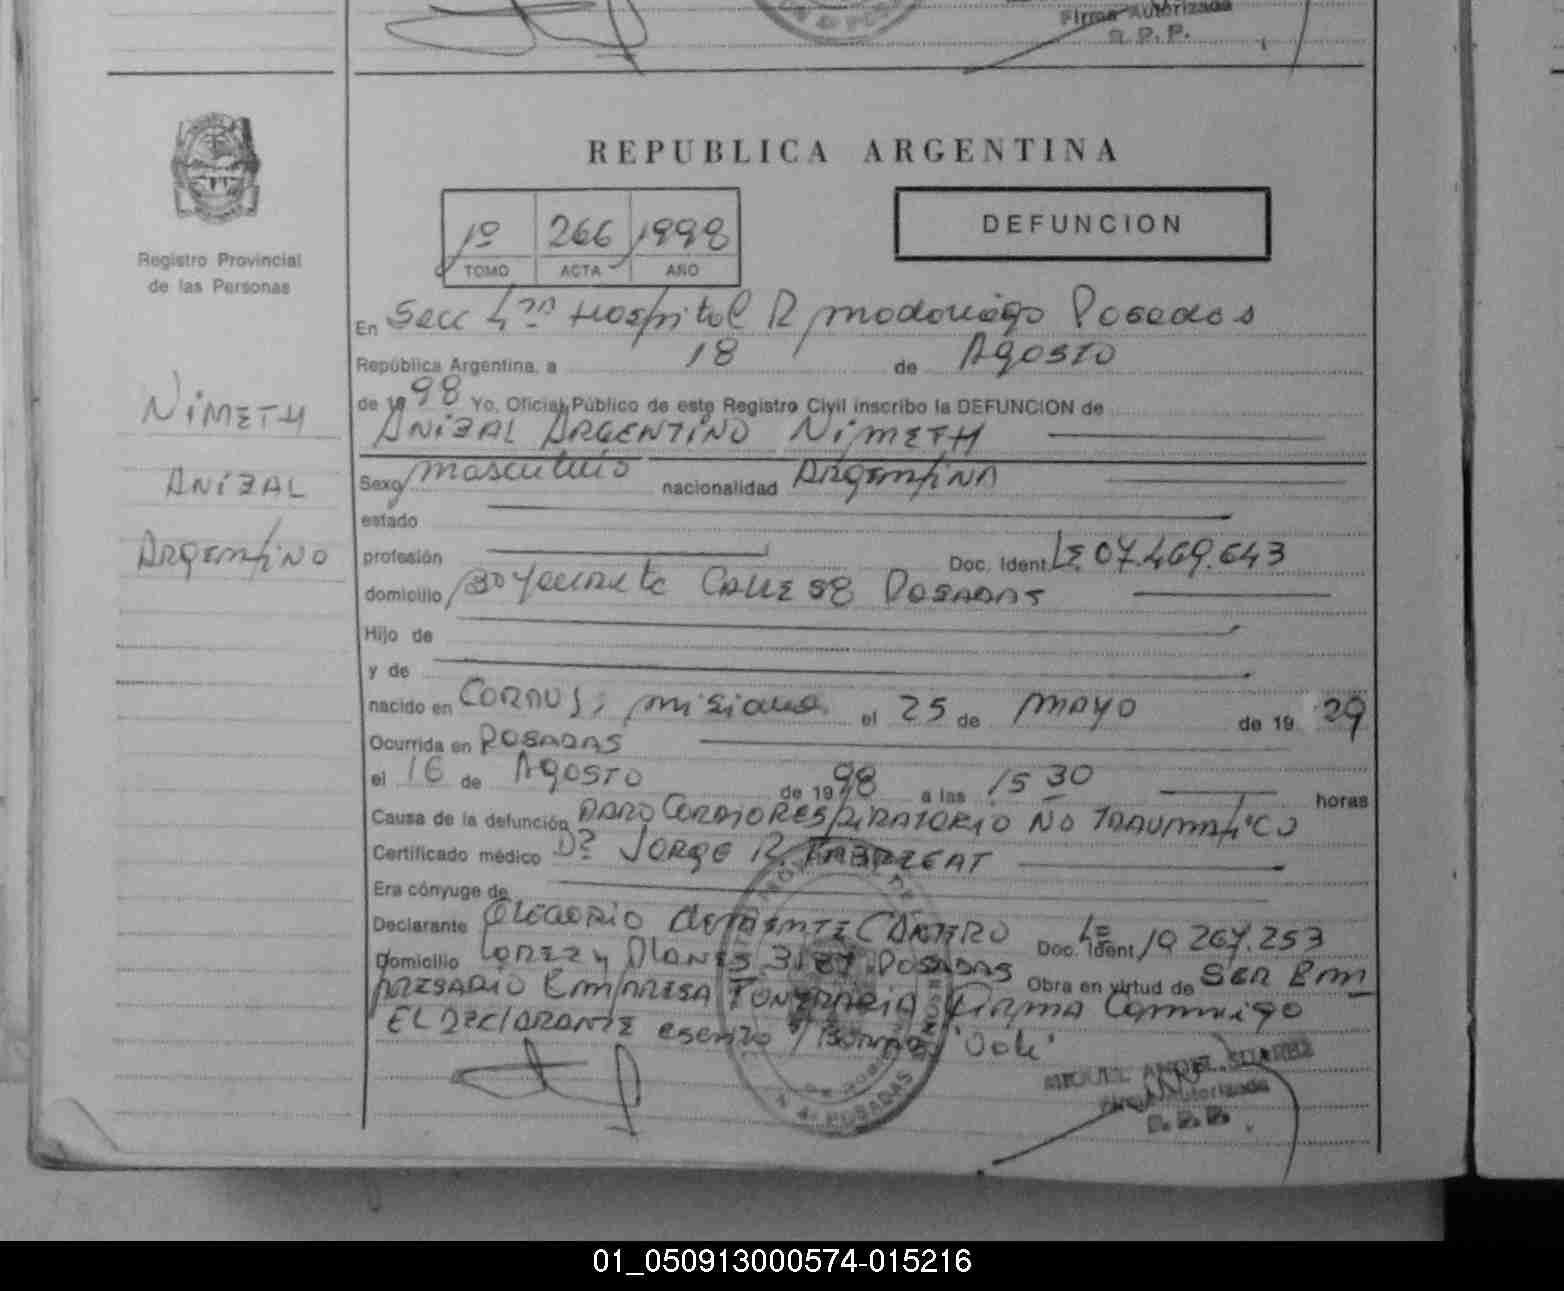 Firma Autorizada
R. P. P.
REPUBLICA ARGENTINA
1º 266 1998
TOMO ACTA AÑO
DEFUNCION
Registro Provincial
de las Personas
En Secc 4ta Hospital R Madariaga Posadas
República Argentina, a 18 de Agosto
de 19 98 Yo, Oficial Público de este Registro Civil inscribo la DEFUNCION de
ANiBAL ARGENTINO NiMETH
NiMETH
ANiBAL
ARgentiNO
Sexo masculino nacionalidad ARgentiNA
estado
profesión Doc. Ident. LE 07.469.643
domicilio CALLE 98 POSADAS
Hijo de
y de
nacido en CORPUS, misiones el 25 de mayo de 19 29
Ocurrida en POSADAS
el 16 de AgOSTO de 19 98 a las 15 30 horas
Causa de la defunción PARO CARDIORESPIRATORIO NO TRAUMATiCO
Certificado médico Dr JORGE R.
Era cónyuge de
Declarante OLEGARIO CANTERO Doc. Ident. LE 10 267.253
Domicilio LOPEZ y PLANES POSADAS Obra en virtud de SER Em
PRESARIO EmPRESA FUNERARIA FiRmA Conmigo
EL DECLARANTE 'Vale'
4ª POSADAS
MIGUEL ANGEL SUAREZ
Firma Autorizada
01_050913000574-015216